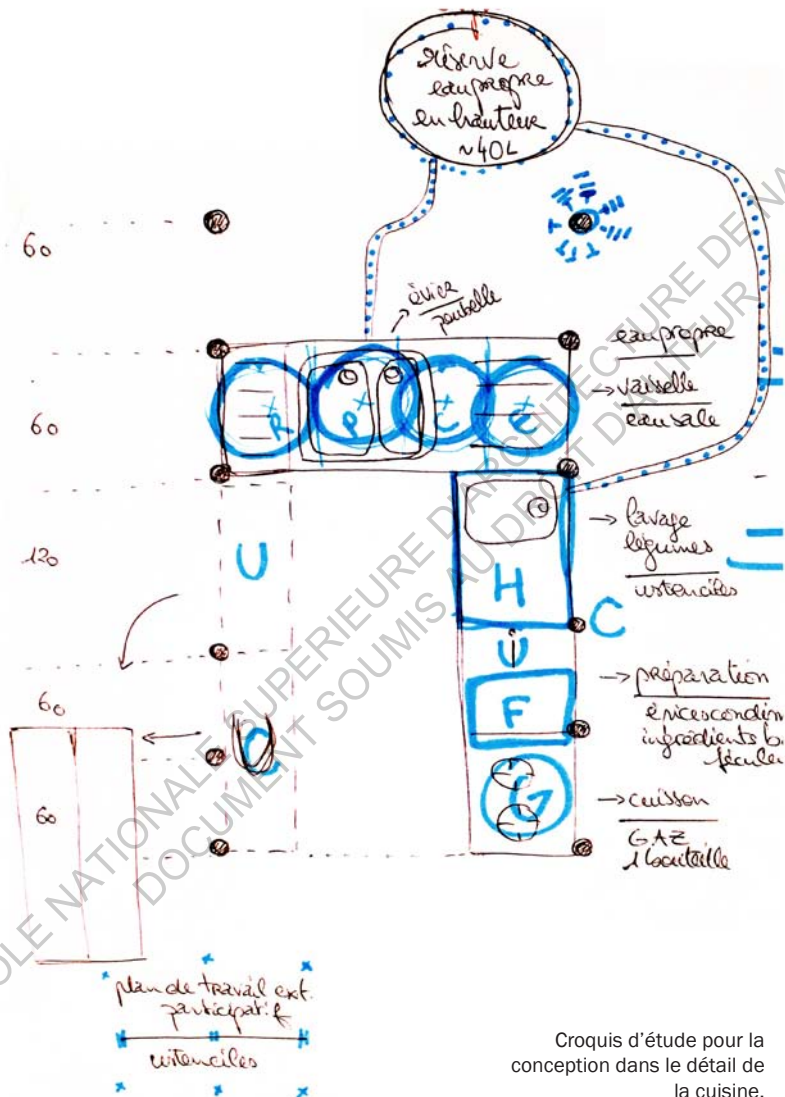 réserve
eau propre
en hauteur
~40L
60
évier
poubelle
eau propre
vaisselle
eau sale
60
R
P
C
E
120
U
H
lavage
légumes
ustenciles
C
U
60
F
préparation
ingrédients b.
60
G
cuisson
GAZ
1 bouteille
plan de travail ext.
participatif
ustenciles
Croquis d'étude pour la
conception dans le détail de
la cuisine.
ECOLE NATIONALE SUPERIEURE D'ARCHITECTURE DE NA
DOCUMENT SOUMIS AU DROIT D'AUTEUR